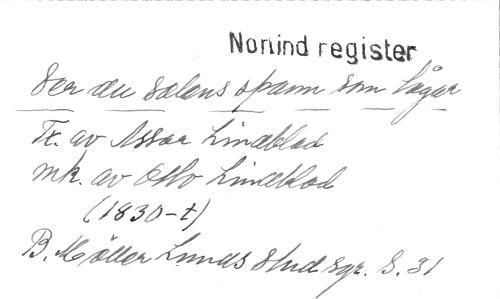 Norlind register
Ser du solens spann som lågar
Tx. av Assar Lindblad
mk. av Otto Lindblad
(1830-t)
B. Möller Lunds stud sgr. S. 31